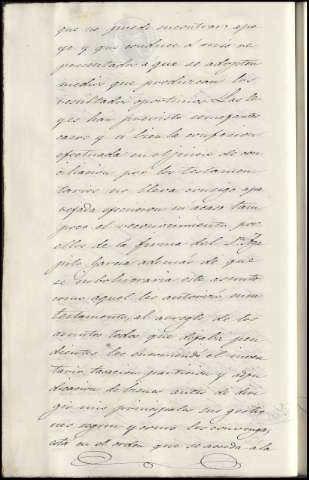 que no puede encontrar apo
yo y que conduce á mis re
presentados a que se adopten
medios que produzcan los
resultados oportunos. Las le
yes han previsto semejantes
casos y si bien la confesion
efectuada en el juicio de con
ciliacion por los testamen
tarios no lleva consigo apa
rejada ejecucion ni acaso tam
poco el reconocimiento por
ellos de la firma del Sr.
Garcia además de que
se este asunto
como aquel les autorizó
testamento, al arreglo de los
asuntos todos que dejaba pen
dientes les encomendó el inven
tario, tasacion particion y adju
dicacion de bienes antes de
mis principales sus gestio
nes segun y como les convenga,
está en el orden que se acuda a la